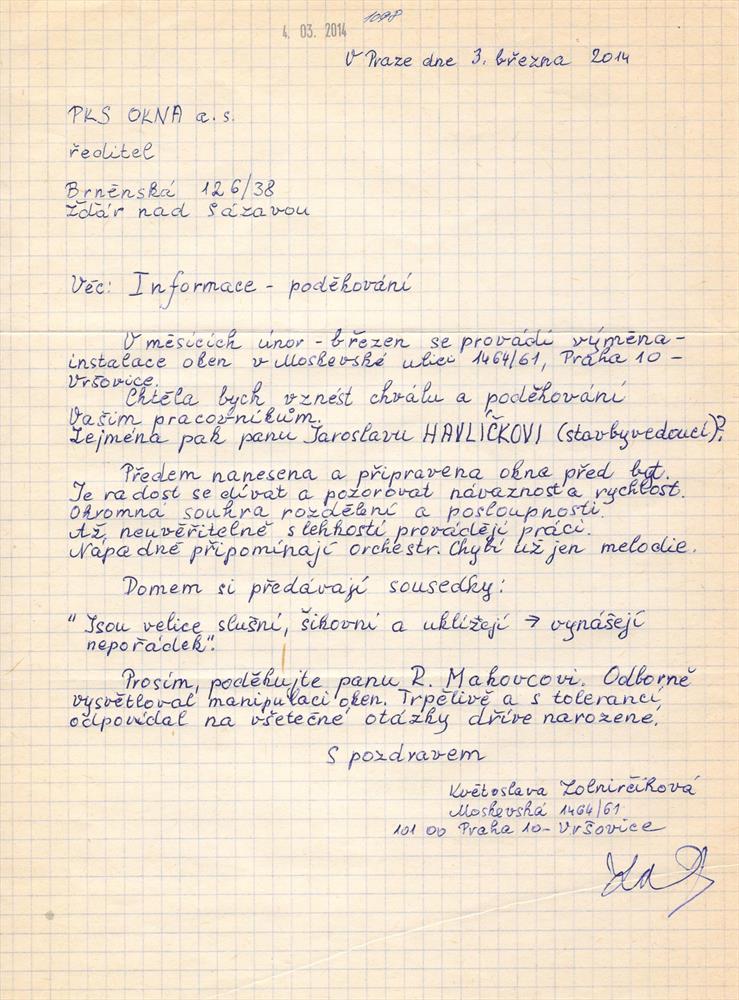 1098
4. 03. 2014
V Praze dne 3. března 2014
PKS OKNA a.s.
ředitel
Brněnská 126/38
Žďár nad Sázavou
Věc: Informace - poděkování
V měsících únor - březen se provádí výměna -
instalace oken v Moskevské ulici 1464/61, Praha 10 -
Vršovice.
Chtěla bych vznést chválu a poděkování
Vašim pracovníkům.
Zejména pak panu Jaroslavu HAVLÍČKOVI (stavbyvedoucí)?
Předem nanesena a připravena okna před byt.
Je radost se dívat a pozorovat návaznost a rychlost.
Ohromná souhra rozdělení a posloupnosti.
Až neuvěřitelně s lehkostí provádějí práci.
Nápadně připomínají orchestr. Chybí už jen melodie.
Domem si předávají sousedky:
"Jsou velice slušní, šikovní a uklízejí → vynášejí
nepořádek".
Prosím, poděkujte panu R. Makovcovi. Odborně
vysvětloval manipulaci oken. Trpělivě a s tolerancí
odpovídal na všetečné otázky dříve narozené.
S pozdravem
Květoslava
Moskevská 1464/61
101 00 Praha 10- Vršovice